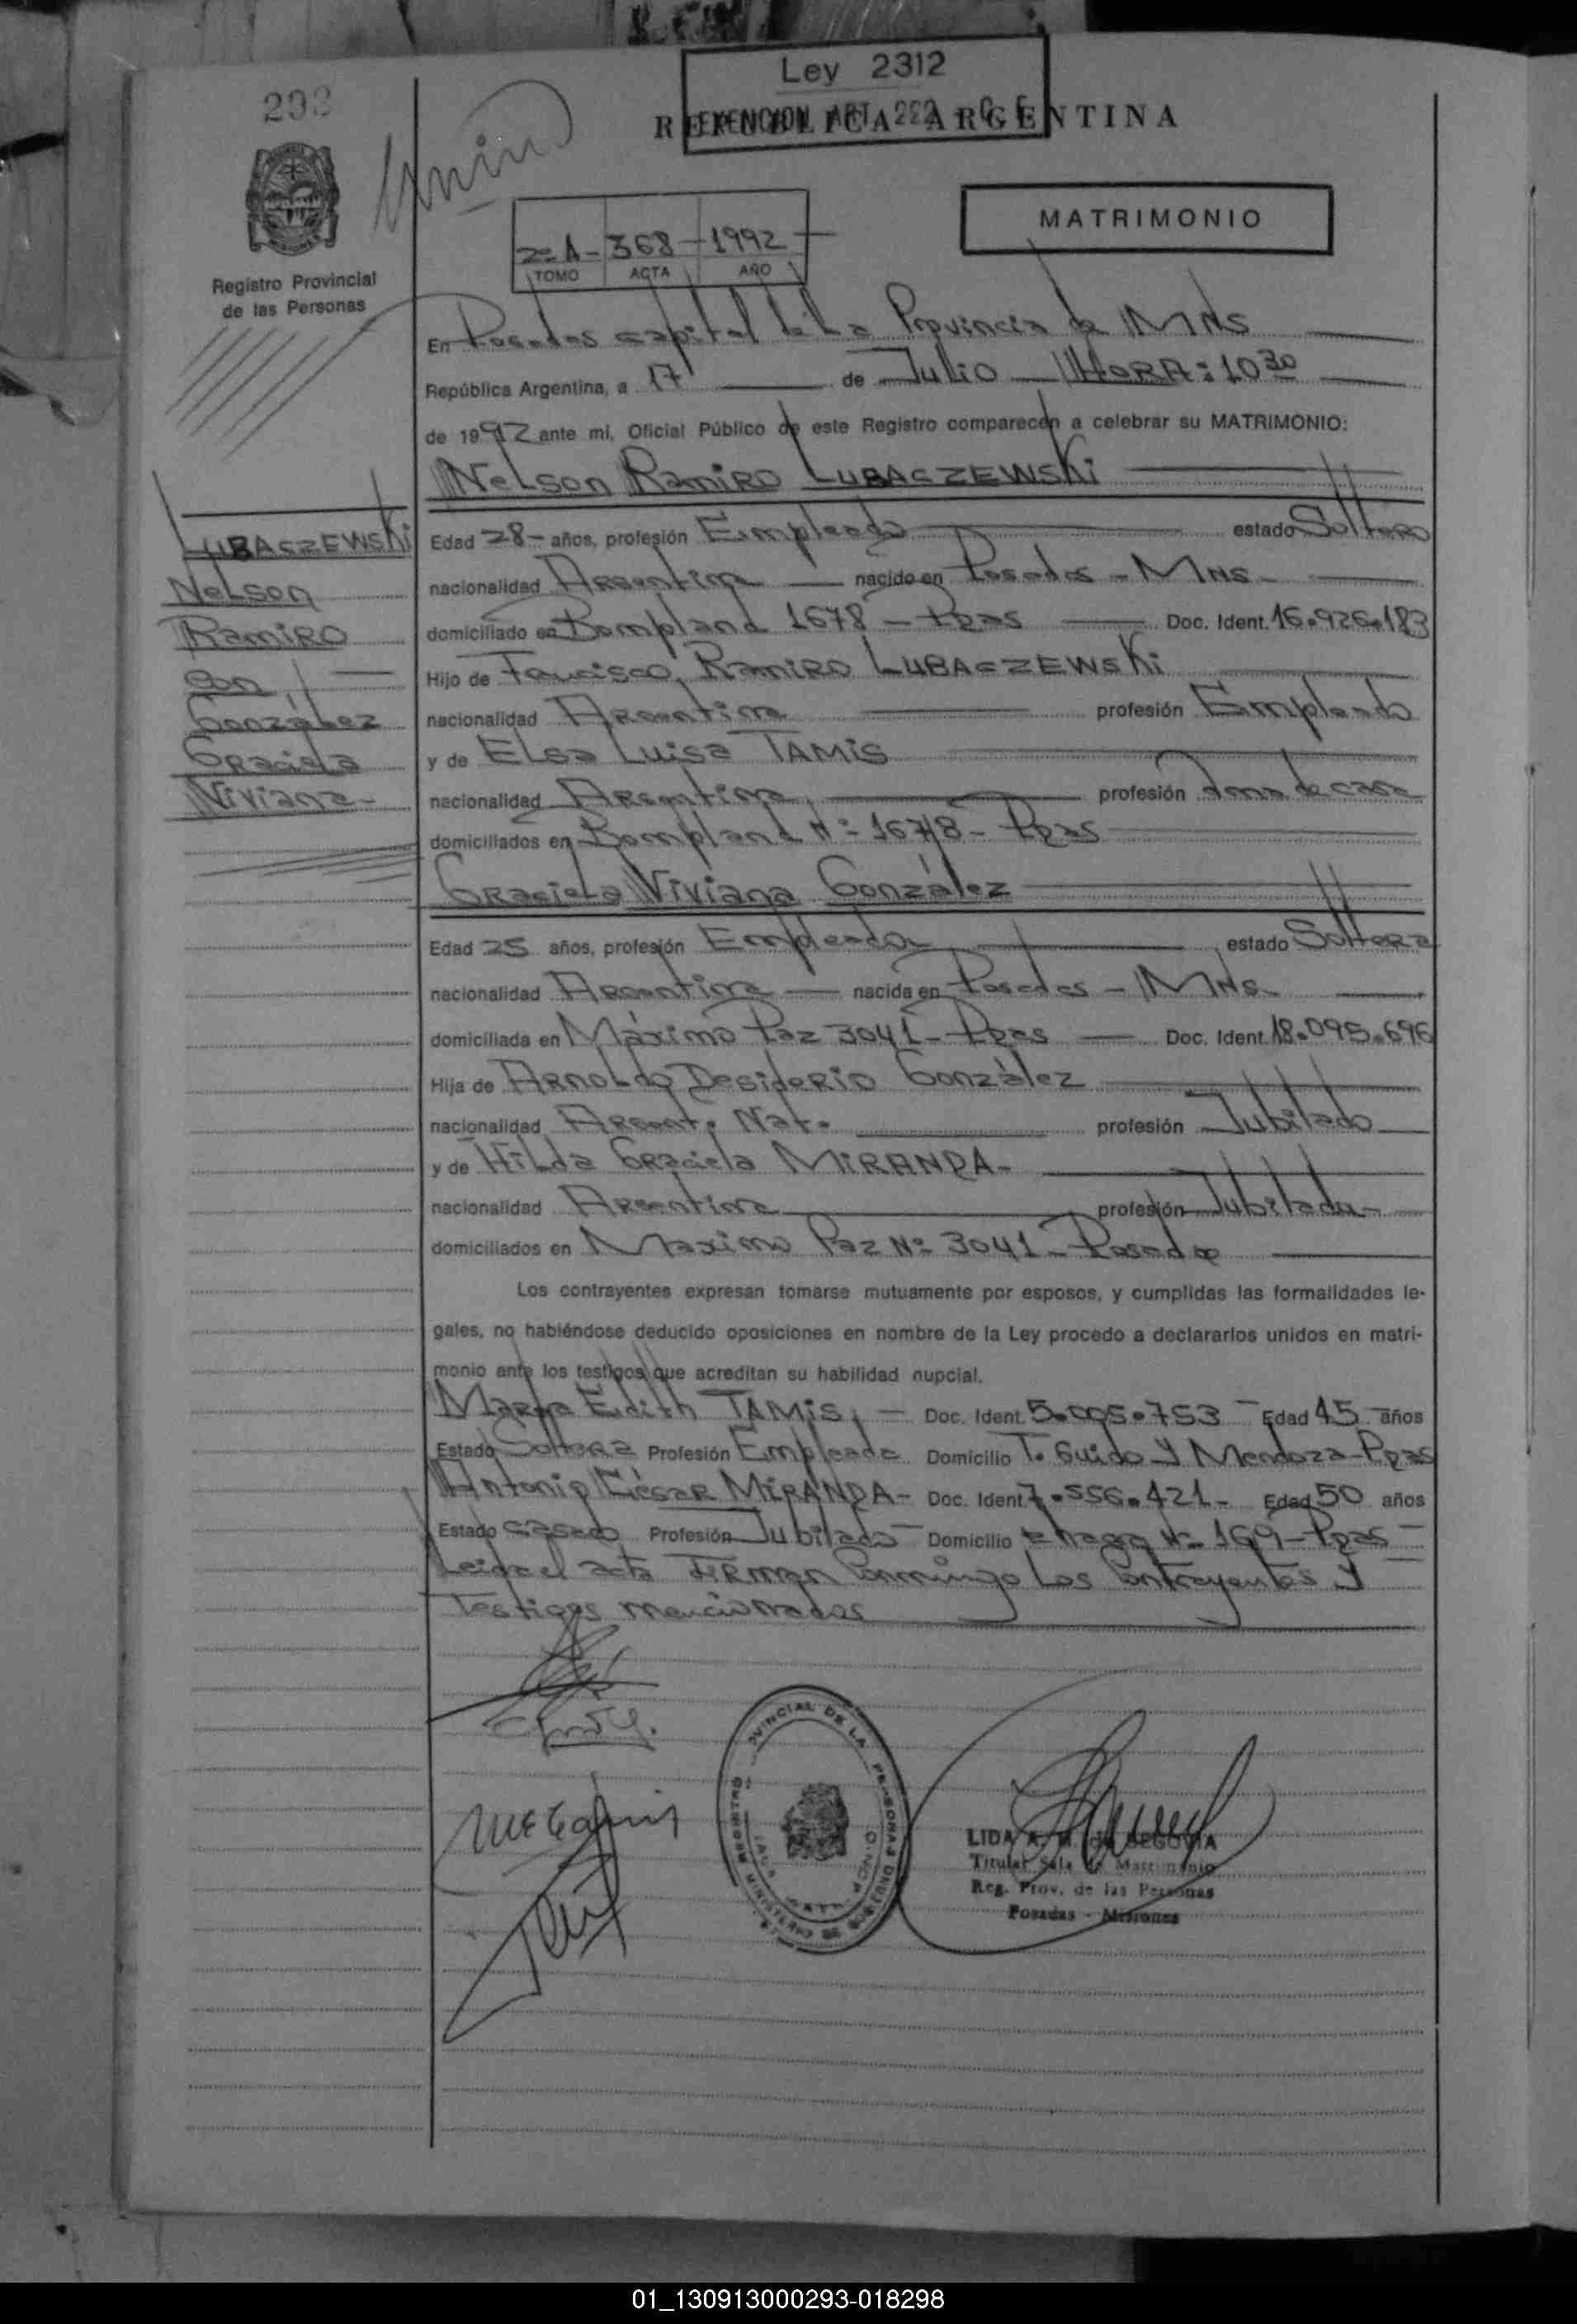 Ley 2312
EXENCION ART. 292
293
REPUBLICA ARGENTINA
MATRIMONIO
2º A - 368 - 1992
TOMO ACTA AÑO
Registro Provincial
de las Personas
En Posadas capital de La Provincia de MNS
República Argentina, a 17 de Julio HORA: 10 30
de 1992 ante mí, Oficial Público de este Registro comparecen a celebrar su MATRIMONIO:
Nelson Ramiro LUBASZEWSKi
LUBASZEWSKi
Nelson
Ramiro
con
González
Graciela
Viviana-
Edad 28- años, profesión Empleado estado Soltero
nacionalidad Argentina nacido en Posadas - MNS-
domiciliado en Bompland 1678 - Pdas Doc. Ident. 16.926.183
Hijo de Francisco Ramiro LUBASZEWSKi
nacionalidad Argentina profesión Empleado
y de Elsa Luisa TAMiS
nacionalidad Argentina profesión Ama de casa
domiciliados en Bompland Nº 1678- Pdas
Graciela Viviana González
Edad 25 años, profesión Empleada estado Soltera
nacionalidad Argentina nacida en Posadas - MNS-
domiciliada en Máximo Paz 3041- Pdas Doc. Ident. 18.095.696
Hija de Arnoldo Desiderio González
nacionalidad Argent. Nat. profesión Jubilado
y de Hilda Graciela MiRANDA-
nacionalidad Argentina profesión Jubilada-
domiciliados en Maximo Paz Nº 3041- Posadas
Los contrayentes expresan tomarse mutuamente por esposos, y cumplidas las formalidades le-
gales, no habiéndose deducido oposiciones en nombre de la Ley procedo a declararlos unidos en matri-
monio ante los testigos que acreditan su habilidad nupcial.
Marta Edith TAMiS, - Doc. Ident. 5.005.753 - Edad 45 años
Estado Soltera Profesión Empleada Domicilio T. Guido y Mendoza-Pdas
Antonio César MiRANDA- Doc. Ident. 7.556.421- Edad 50 años
Estado casado Profesión Jubilado - Domicilio Nº 169- Pdas -
Leida el acta Firman Conmingo Los Contrayentes y
Testigos mencionados
LIDA A. M. de SEGOVIA
Titular Sala de Matrimonio
Reg. Prov. de las Personas
Posadas - Misiones
01_130913000293-018298